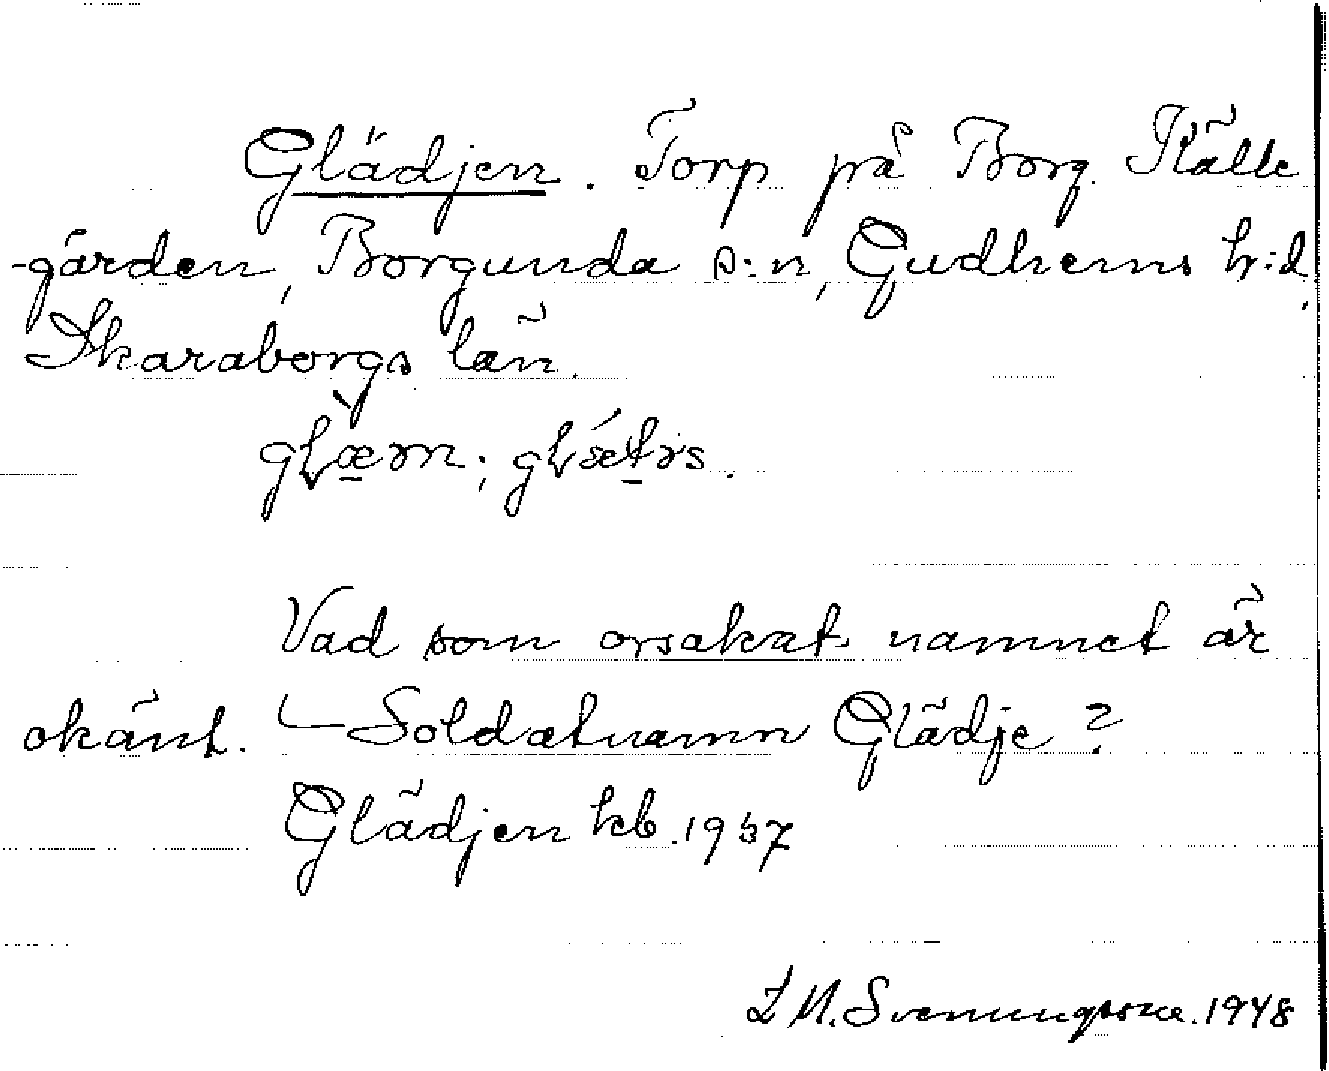 Glädjen. Torp på Borg. Källe
-gården, Borgunda s:n, Gudhems h:d,
Skaraborgs län.
Vad som orsakat namnet är
okänt. Soldatnamn Glädje?
Glädjen kb. 1937
Svenungsson. 1948